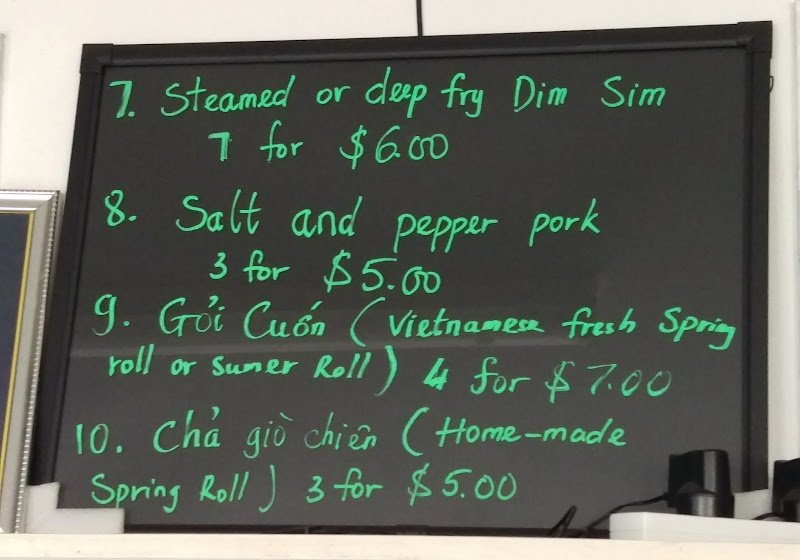 7. Steamed or deep fry Dim Sim
7 for $6.00
8. Salt and pepper pork
3 for $5.00
9. Gỏi Cuốn (Vietnamese fresh Spring
roll or Sumer Roll) 4 for $7.00
10. Chả giò chiên (Home-made
Spring Roll) 3 for $5.00